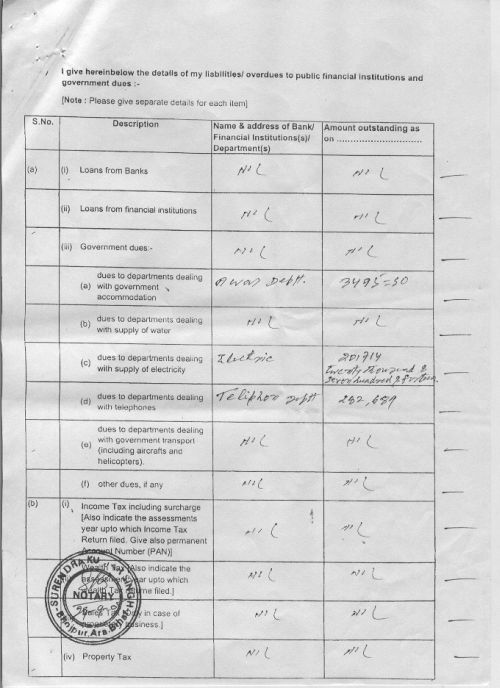 I give hereinbelow the details of my liabilities/ overdues to public financial institutions and
government dues :-
[Note : Please give separate details for each item]
S.No. Description Name & address of Bank/ Financial Institutions(s)/ Department(s) Amount outstanding as on ..............................
(a) (i) Loans from Banks NIL NIL
(ii) Loans from financial institutions NIL NIL
(iii) Government dues:- NIL NIL
dues to departments dealing
(a) with government Awas Deptt. 3495=50
accommodation
(b) dues to departments dealing NIL NIL
with supply of water
(c) dues to departments dealing Electric
with supply of electricity
(d) dues to departments dealing Teliphon Deptt
with telephones
dues to departments dealing
(e) with government transport NIL NIL
(including aircrafts and
helicopters).
(f) other dues, if any NIL NIL
(b) (i) Income Tax including surcharge
[Also Indicate the assessments
year upto which Income Tax NIL NIL
Return filed. Give also permanent
Account Number (PAN)]
Wealth Tax [Also indicate the NIL NIL
assessment year upto which
Wealth Tax filed.]
Sales Tax [Only in case of NIL NIL
business.]
(iv) Property Tax NIL NIL
SURENDRA KU SINGH
NOTARY
Bhojpur, Ara, Bihar